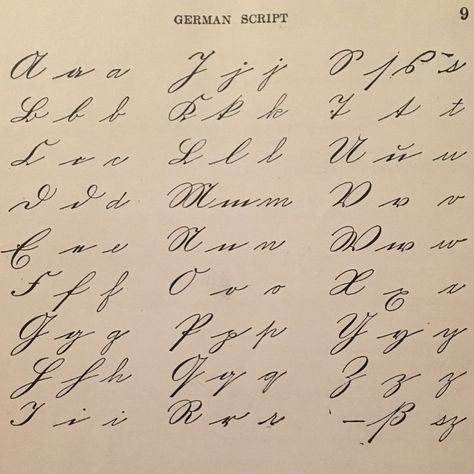 GERMAN SCRIPT 9
A a a J j j S ſ s – s
B b b K k k T t t
C c c L l l U u u
D d d M m m V v v
E e e N n n W w w
F f f O o o X x x
G g g P p p Y y y
H h h Q q q Z z z
I i i R r r – ß sz